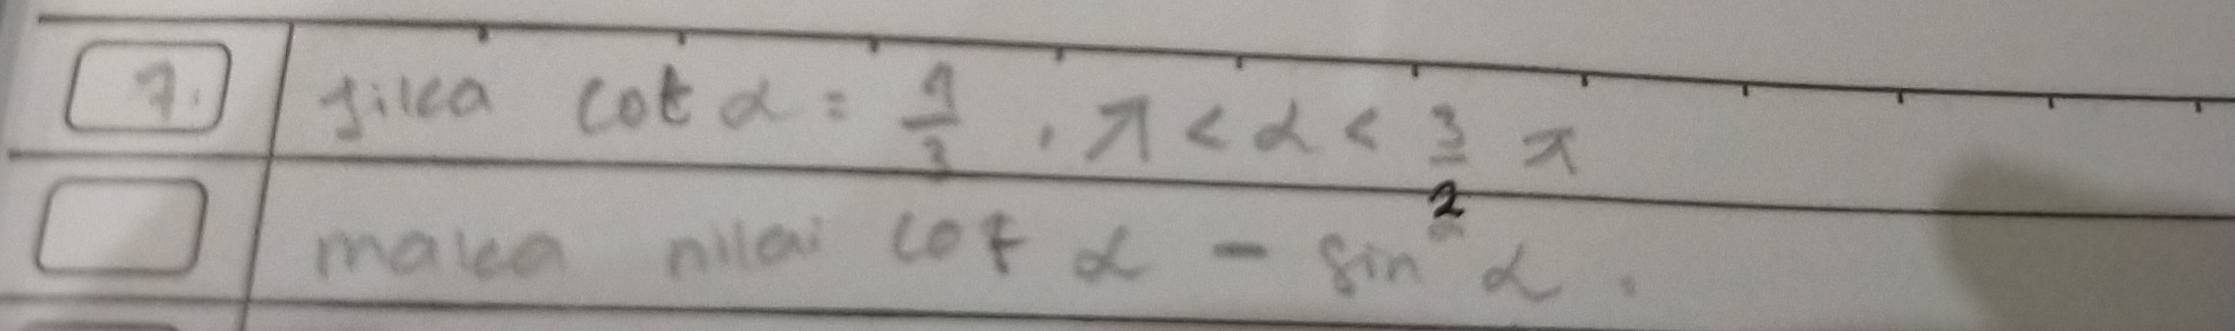 7. Jika cot α = 4/3 , π < α < 3/2 π
maka nilai cot α - sin² α .